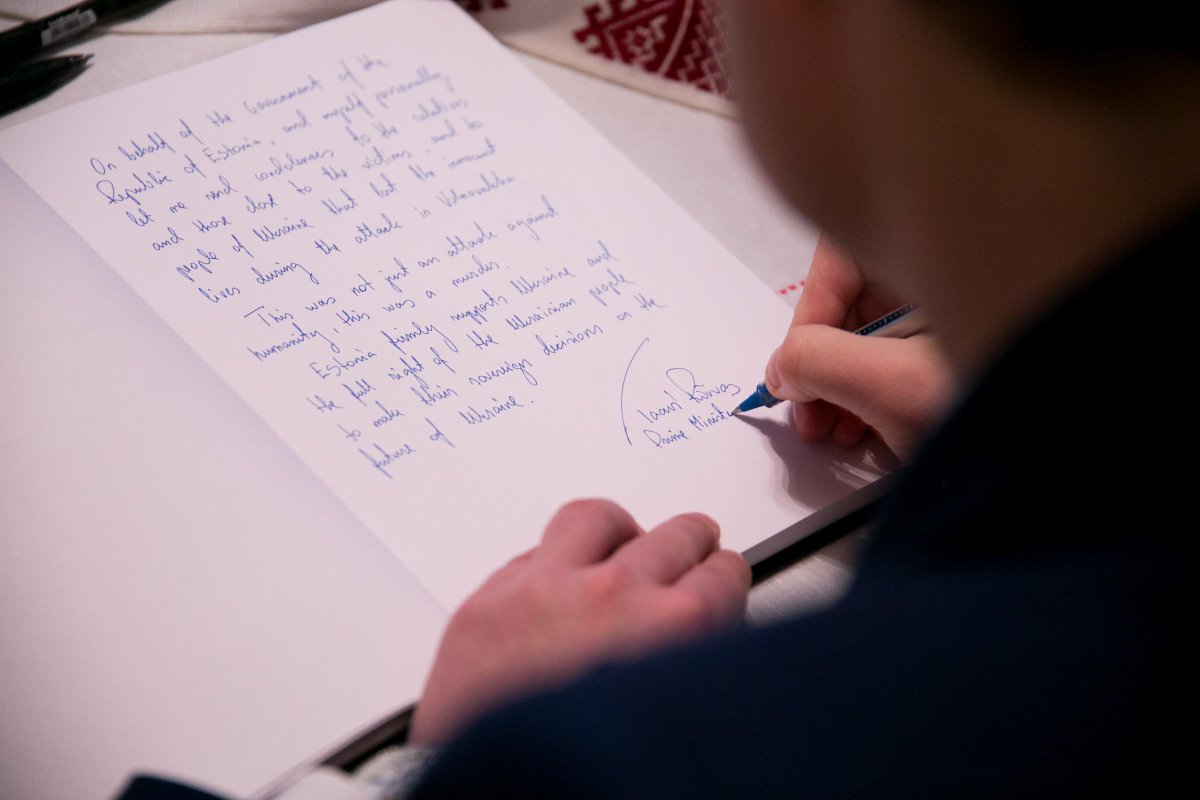 On behalf of the Government of the
Republic of Estonia, and myself personally
let me send condolences to the relatives
and those close to the victims, and to
people of Ukraine that lost the innocent
lives during the attack in Volnovakha.
This was not just an attack against
humanity, this was a murder.
Estonia firmly supports Ukraine and
the full right of the Ukrainian people
to make their sovereign decisions on the
future of Ukraine.
Taavi Rõivas
Prime Minister